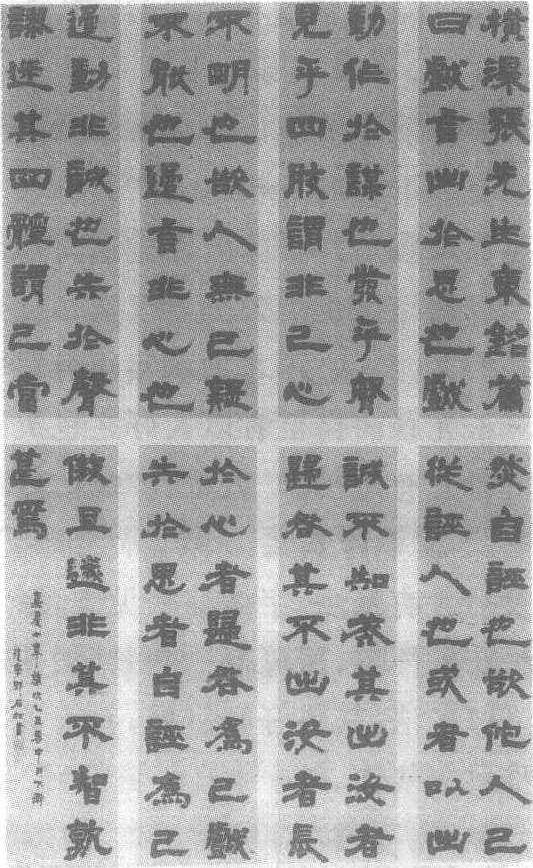 橫渠張先生東銘篇
曰戲言出於思也戲
動作於謀也發乎聲
見乎四肢謂非己心
不明也欲人無己疑
不能也過言非心也
過動非誠也失於聲
謬迷其四體謂己當
然自誣也欲他人己
從誣人也或者以出
誠不知戒其出汝者
歸咎其不出汝者長
於心者歸咎為己戲
失於思者自誣為己
傲且遂非其不智孰
甚焉